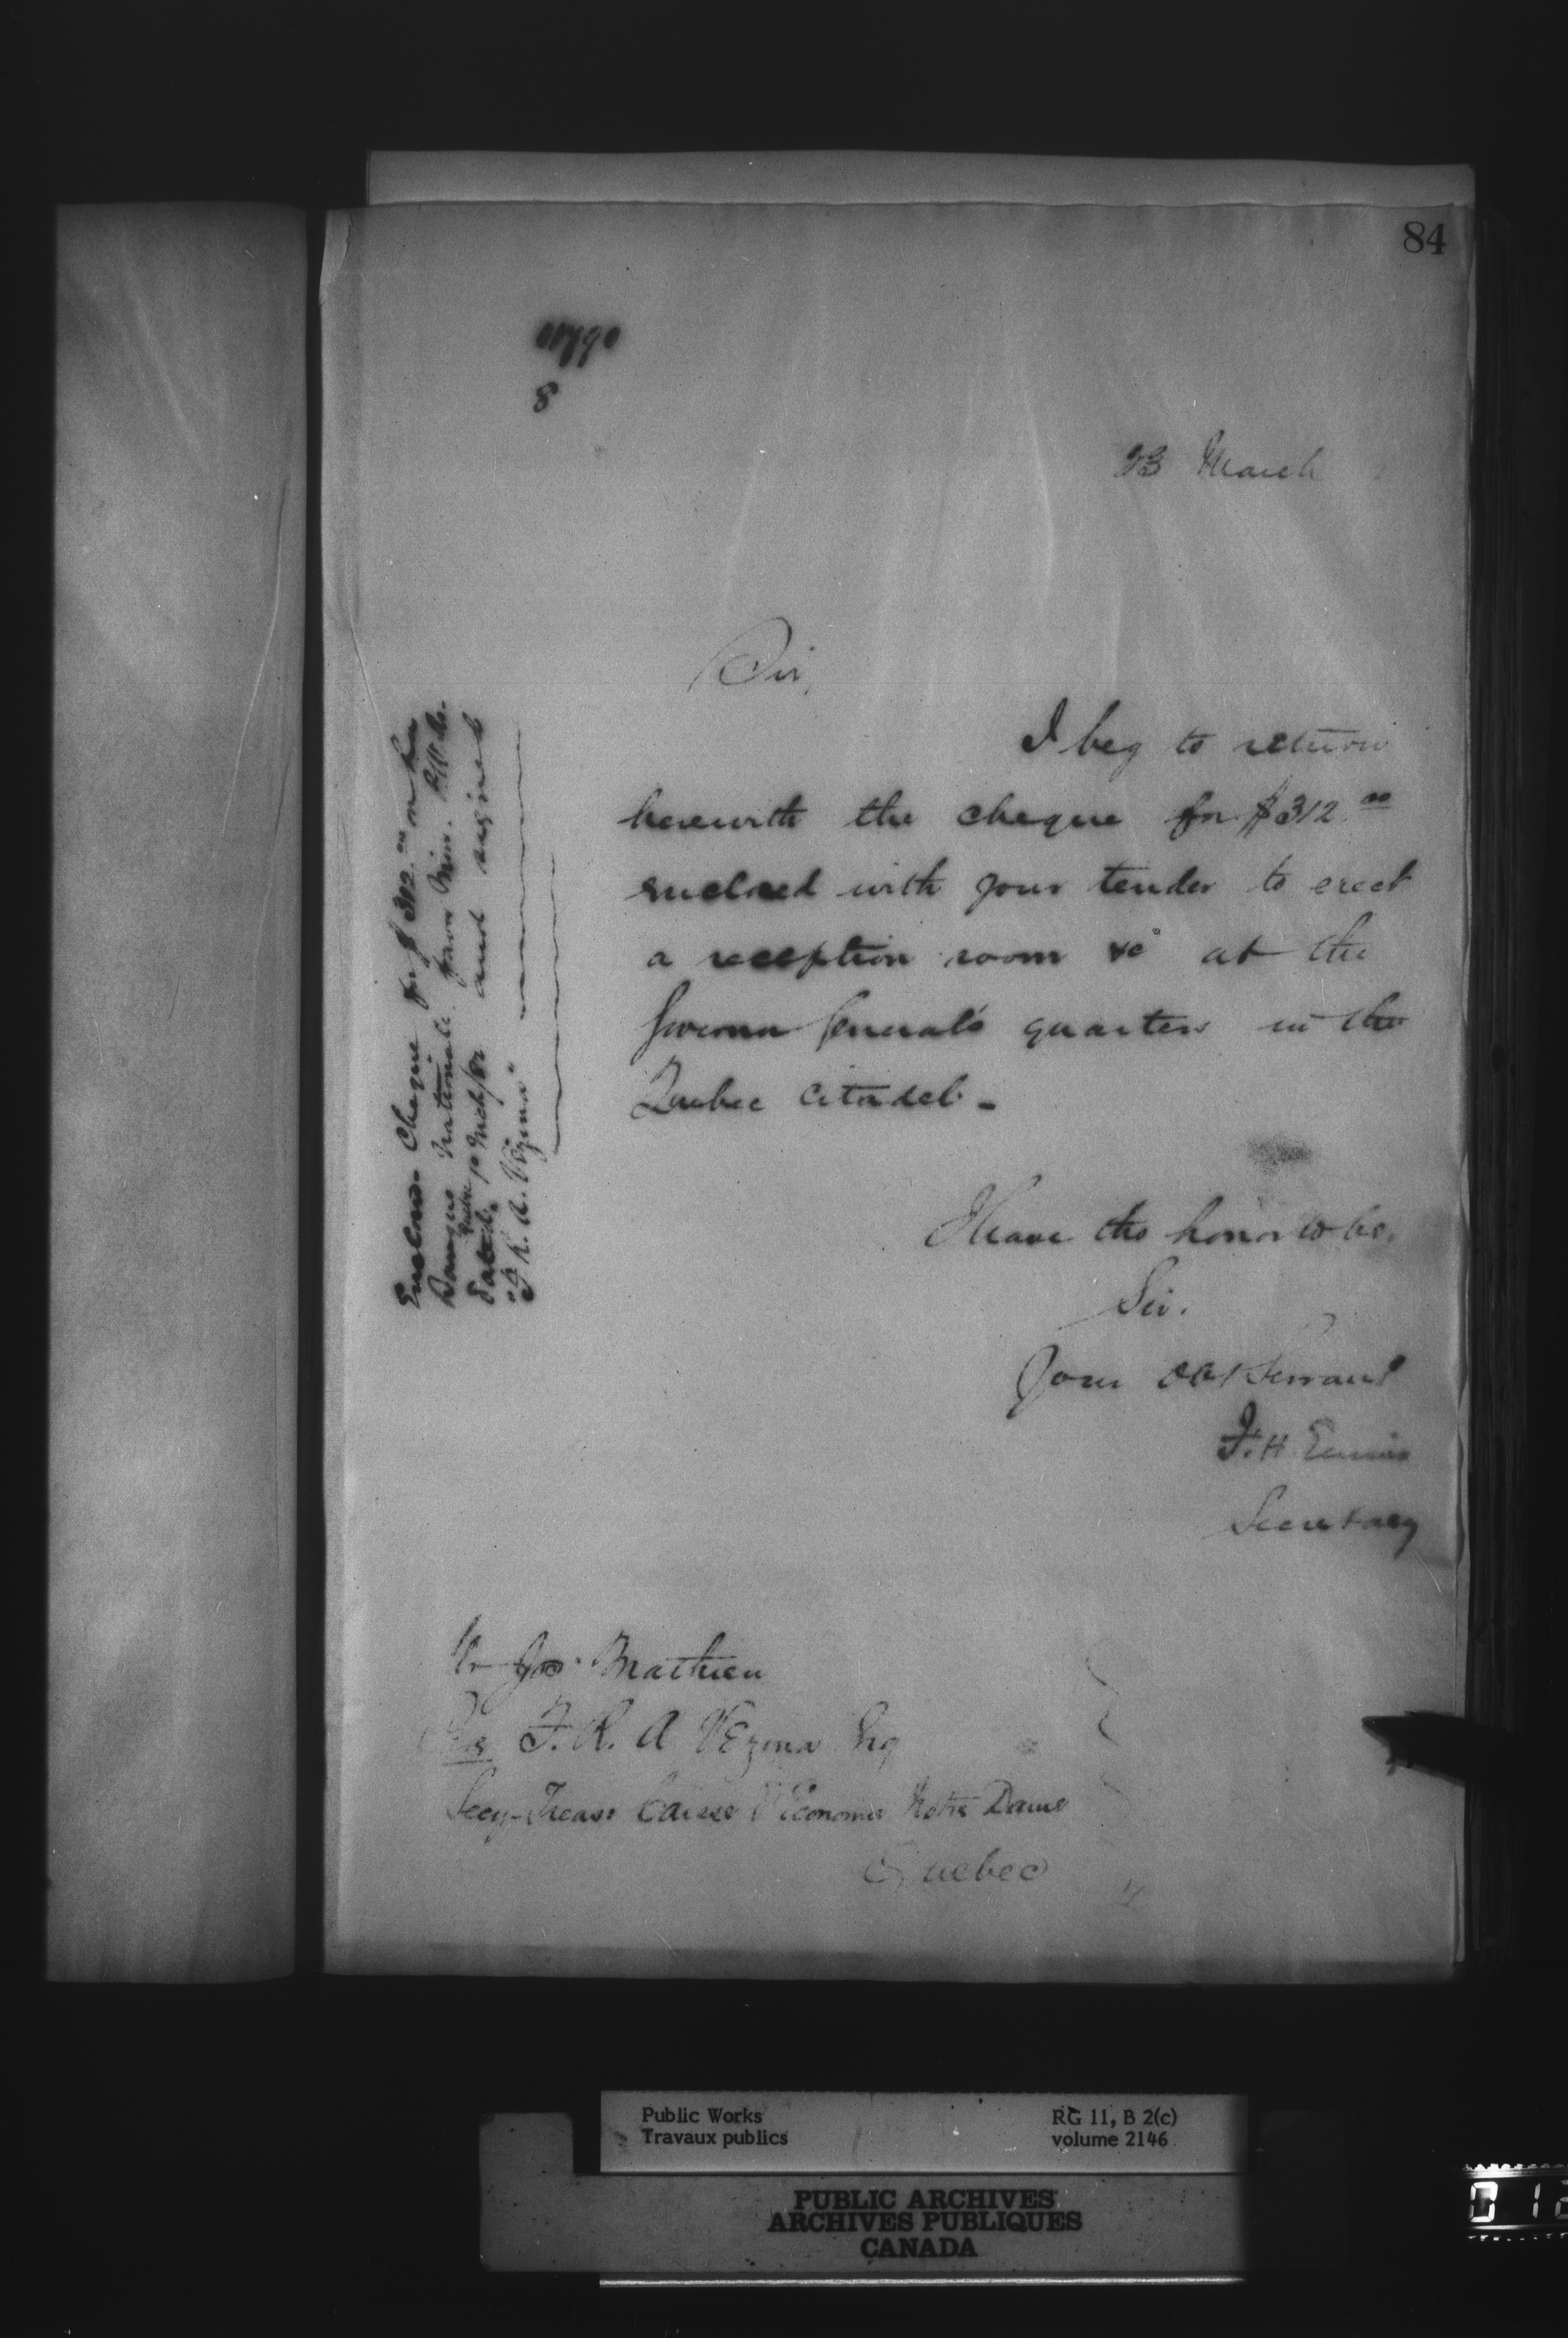 84
8
23 March
Sir,
I beg to return
herewith the cheque for $312.00
enclosed with your tender to erect
a reception room &c at the
Governor General's quarters in the
Quebec Citadel. -
I have the honor to be,
Sir.
Your Obt Servant
F. H. Ennis
Secretary
Enclosed. Cheque for $312.00 on the
Banque Nationale. favor Min. P. Wks.
Dated. Quebec 10 Mch/82 and signed
"F. R. A. Vezina"
Mr Jos. Mathieu
Care F. R. A Vezina Esq
Secy-Treasr Caisse d'Economie Notre Dame
Quebec
Public Works
Travaux publics
RG 11, B 2(c)
volume 2146
PUBLIC ARCHIVES
ARCHIVES PUBLIQUES
CANADA